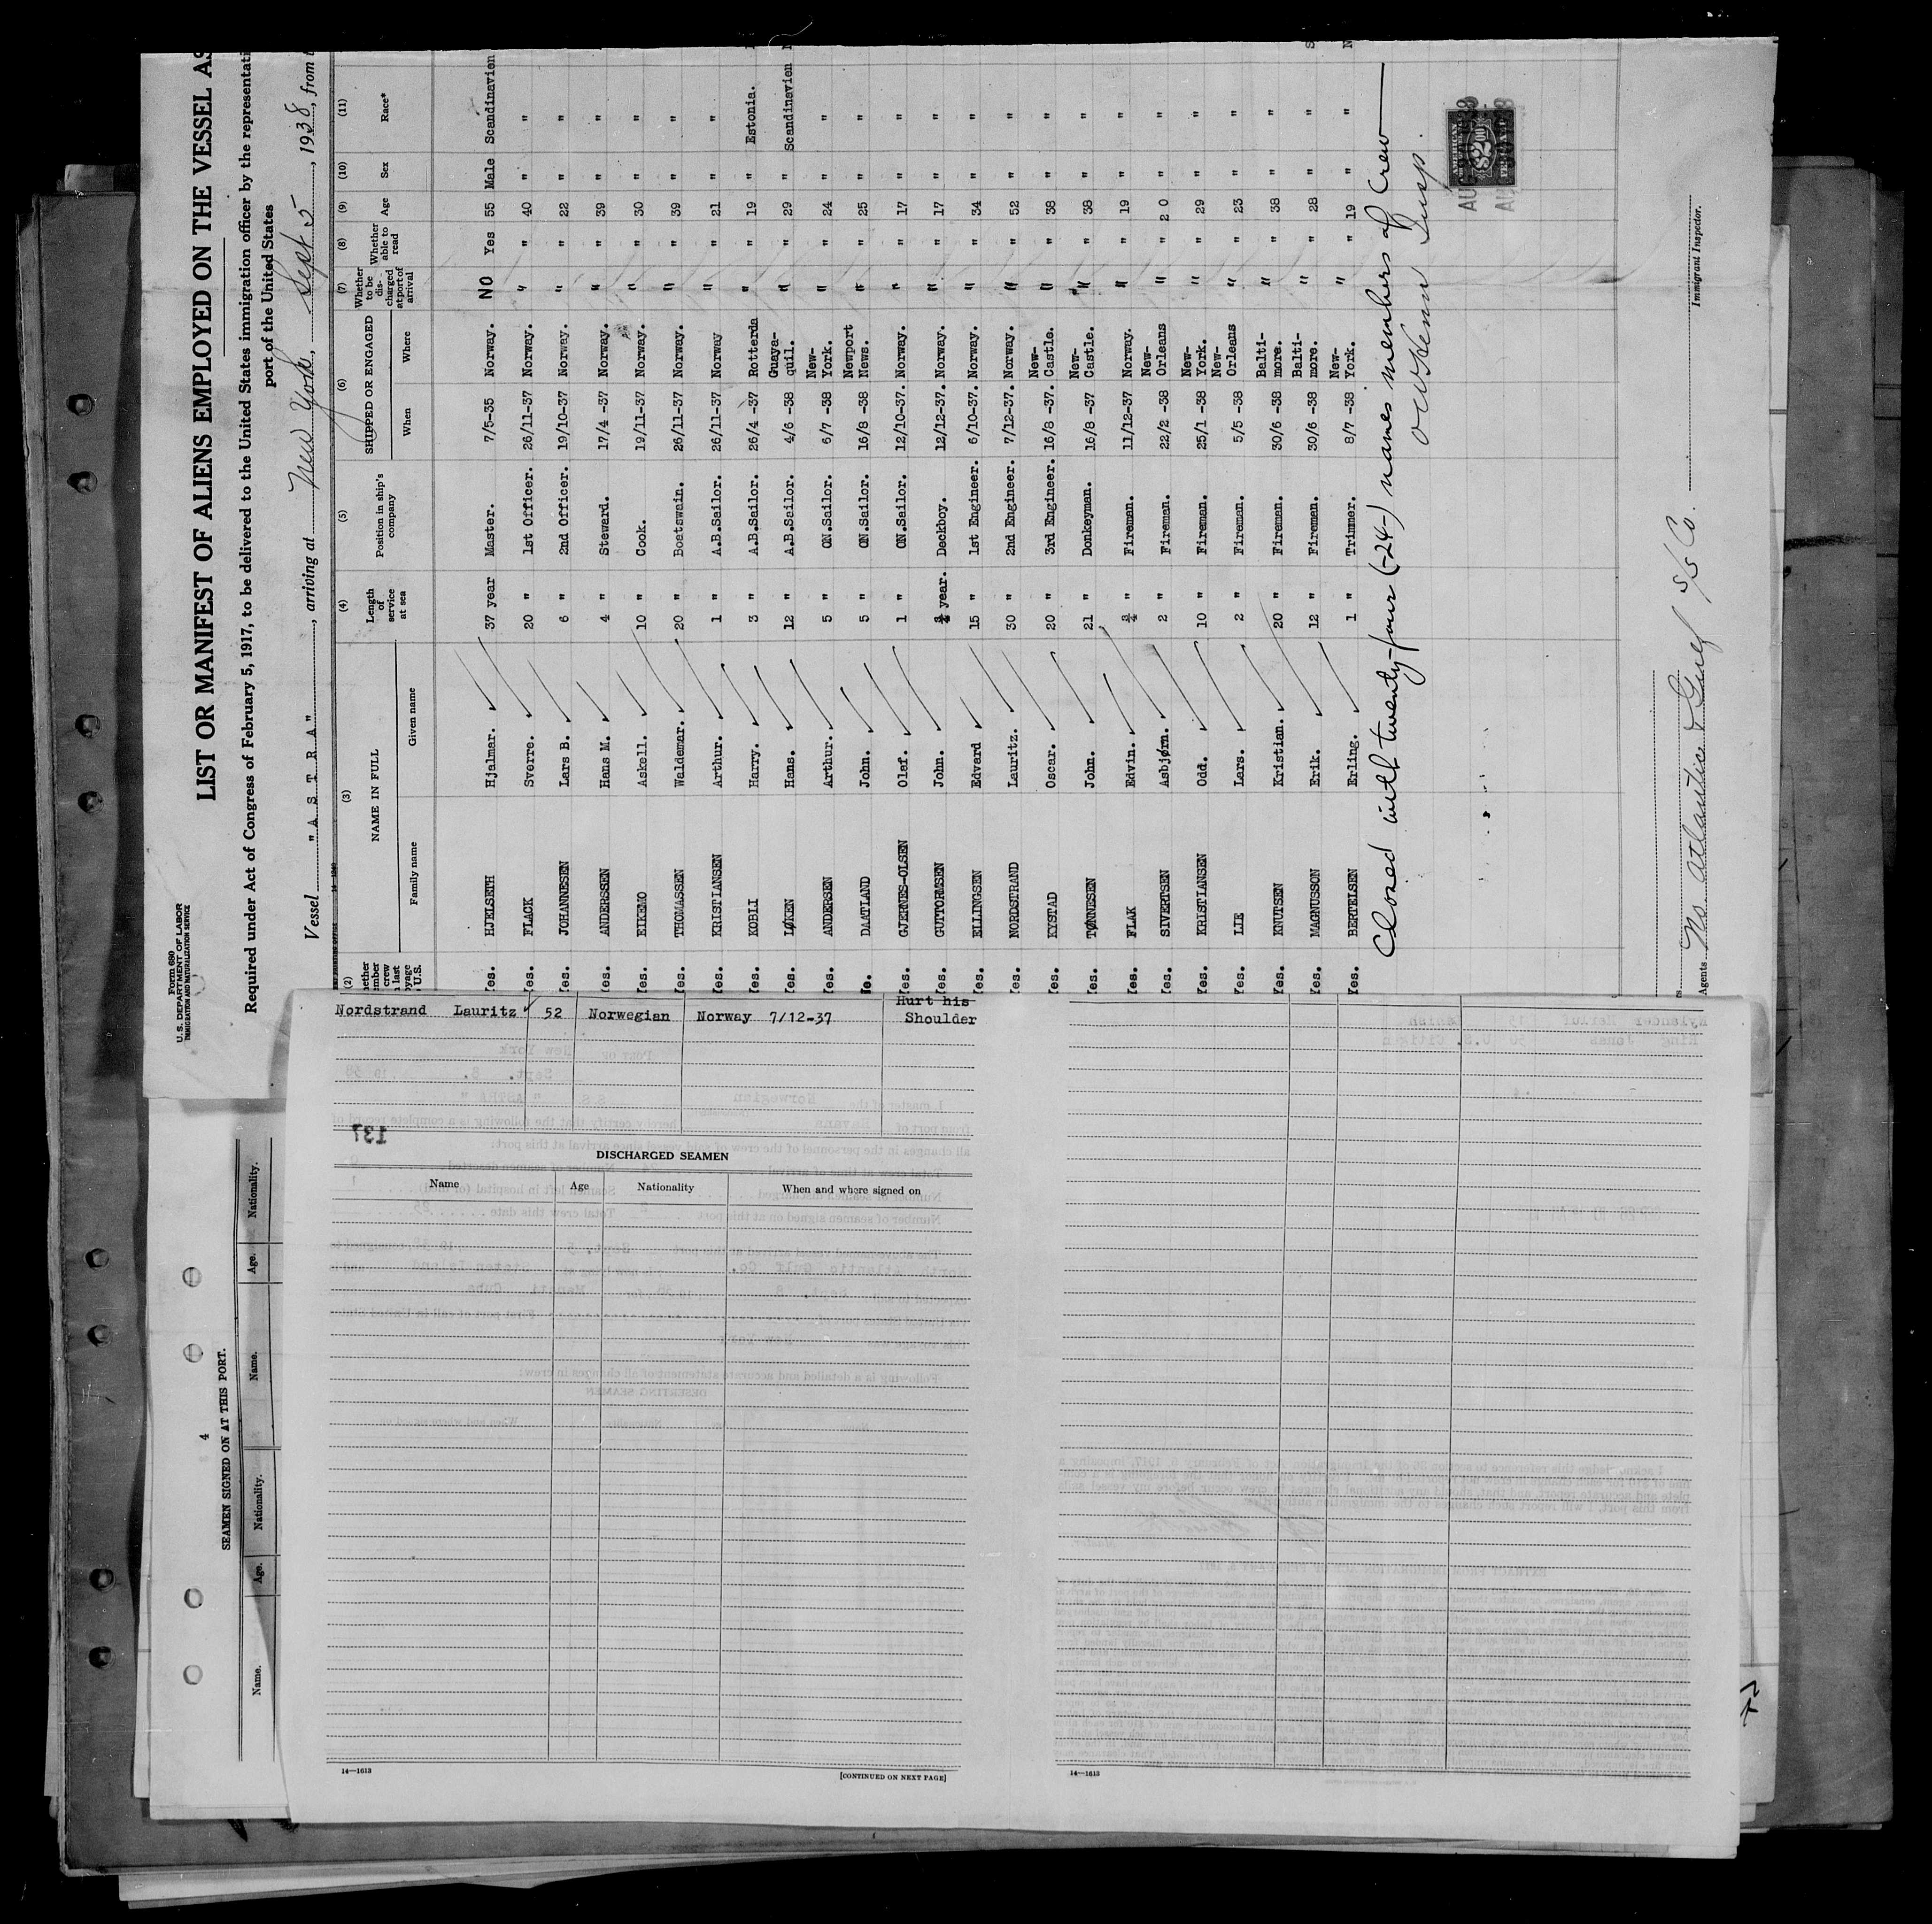 Form 680
U.S. DEPARTMENT OF LABOR
IMMIGRATION AND NATURALIZATION SERVICE
LIST OR MANIFEST OF ALIENS EMPLOYED ON THE VESSEL AS
Required under Act of Congress of February 5, 1917, to be delivered to the United States immigration officer by the representati
port of the United States
Vessel "A S T R A", arriving at New York, Sept 5, 1938, from t
(2) (3) (4) (5) (6) (7) (8) (9) (10) (11)
NAME IN FULL
Family name Given name
Length of service at sea
Position in ship's company
SHIPPED OR ENGAGED
When Where
Whether to be discharged at port of arrival
Whether able to read
Age Sex Race*
Yes. HJELSETH Hjalmar. 37 year Master. 7/5-35 Norway. NO Yes 55 Male Scandinavien
Yes. FLACK Sverre. 20 " 1st Officer. 26/11-37 Norway. " " 40 " "
Yes. JOHANNESEN Lars B. 6 " 2nd Officer. 19/10-37 Norway. " " 22 " "
Yes. ANDERSSEN Hans M. 4 " Steward. 17/4 -37 Norway. " " 39 " "
Yes. EIKEMO Askell. 10 " Cook. 19/11-37 Norway. " " 30 " "
Yes. THOMASSEN Waldemar. 20 " Boatswain. 26/11-37 Norway. " " 39 " "
Yes. KRISTIANSEN Arthur. 1 " A.B.Sailor. 26/11-37 Norway " " 21 " "
Yes. KOBLI Harry. 3 " A.B.Sailor. 26/4 -37 Rotterda " " 19 " Estonia.
Yes. LØKEN Hans. 12 " A.B.Sailor. 4/6 -38 Guaya-quil. " " 29 " Scandinavien
Yes. ANDERSEN Arthur. 5 " ON.Sailor. 6/7 -38 New-York. " " 24 " "
No. DAATLAND John. 5 " ON.Sailor. 16/8 -38 Newport News. " " 25 " "
Yes. GJERNES-OLSEN Olaf. 1 " ON.Sailor. 12/10-37. Norway. " " 17 " "
Yes. GUTTORMSEN John. ¾ year. Deckboy. 12/12-37. Norway. " " 17 " "
Yes. ELLINGSEN Edvard 15 " 1st Engineer. 6/10-37. Norway. " " 34 " "
Yes. NORDSTRAND Lauritz. 30 " 2nd Engineer. 7/12-37. Norway. " " 52 " "
Yes. KYSTAD Oscar. 20 " 3rd Engineer. 16/8 -37. New-Castle. " " 38 " "
Yes. TØNNESEN John. 21 " Donkeyman. 16/8 -37 New-Castle. " " 38 " "
Yes. FLAK Edvin. ¾ " Fireman. 11/12-37 Norway. " " 19 " "
Yes. SIVERTSEN Asbjørn. 2 " Fireman. 22/2 -38 New-Orleans " " 2 0 " "
Yes. KRISTIANSEN Odd. 10 " Fireman. 25/1 -38 New-York. " " 29 " "
Yes. LIE Lars. 2 " Fireman. 5/5 -38 New-Orleans " " 23 " "
Yes. KNUTSEN Kristian. 20 " Fireman. 30/6 -38 Balti-more. " " 38 " "
Yes. MAGNUSSON Erik. 12 " Fireman. 30/6 -38 Balti-more. " " 28 " "
Yes. BERTELSEN Erling. 1 " Trimmer. 8/7 -38 New-York. " " 19 " "
Closed with twenty-four (-24-) names members of Crew
Insp.
AMERICAN
$2.00
Agents No. Atlantic & Gulf S/S Co.
Immigrant Inspector.
Nordstrand Lauritz 52 Norwegian Norway 7/12-37 Hurt his
Shoulder
137
DISCHARGED SEAMEN
Name Age Nationality When and where signed on
14—1613
[CONTINUED ON NEXT PAGE]
14—1613
4
SEAMEN SIGNED ON AT THIS PORT.
Name. Age. Nationality. Name. Age. Nationality.